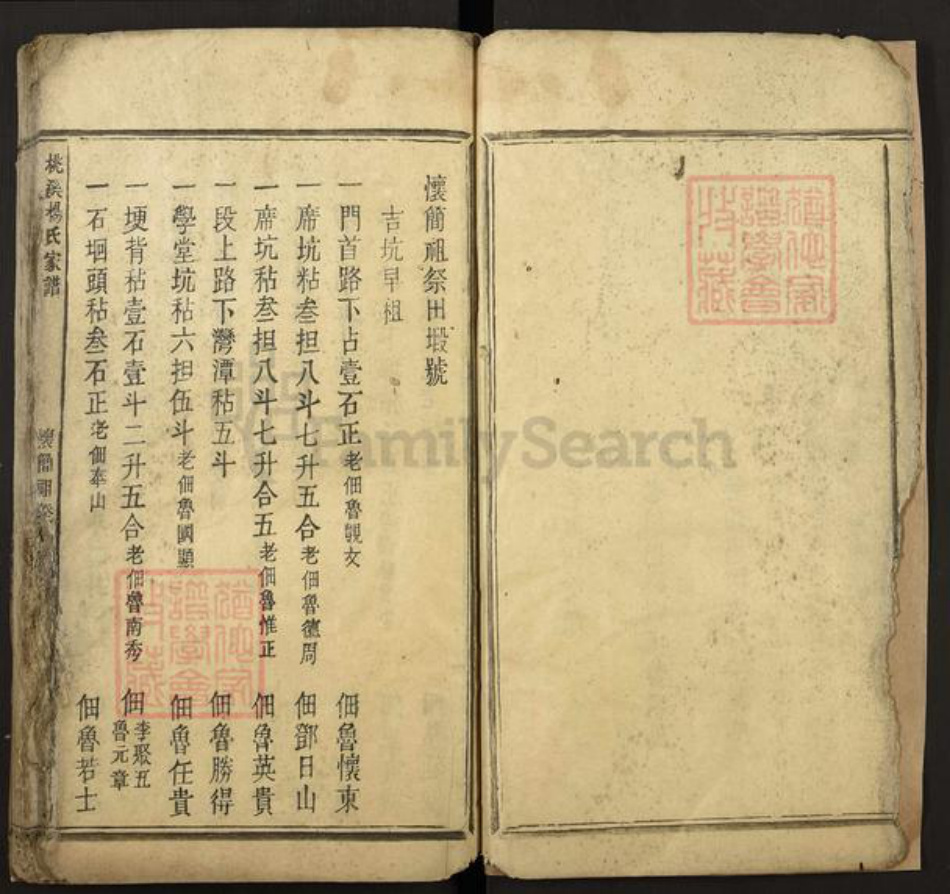 懷簡祖祭田塅號
吉坑早祖
一門首路下占壹石正老佃魯覲女 佃魯懷東
一席坑粘叁担八斗七升五合老佃魯德周 佃鄧日山
一席坑秥叁担八斗七升合五老佃魯惟正 佃魯英貴
一段上路下灣潭秥五斗 佃魯勝得
一學堂坑秥六担伍斗老佃魯國顯 佃魯任貴
一埂背秥壹石壹斗二升五合老佃魯南秀 佃李聚五魯元章
一石堌頭秥叁石正老佃奉山 佃魯若士
桃溪楊氏家譜
懷簡祖祭
FamilySearch